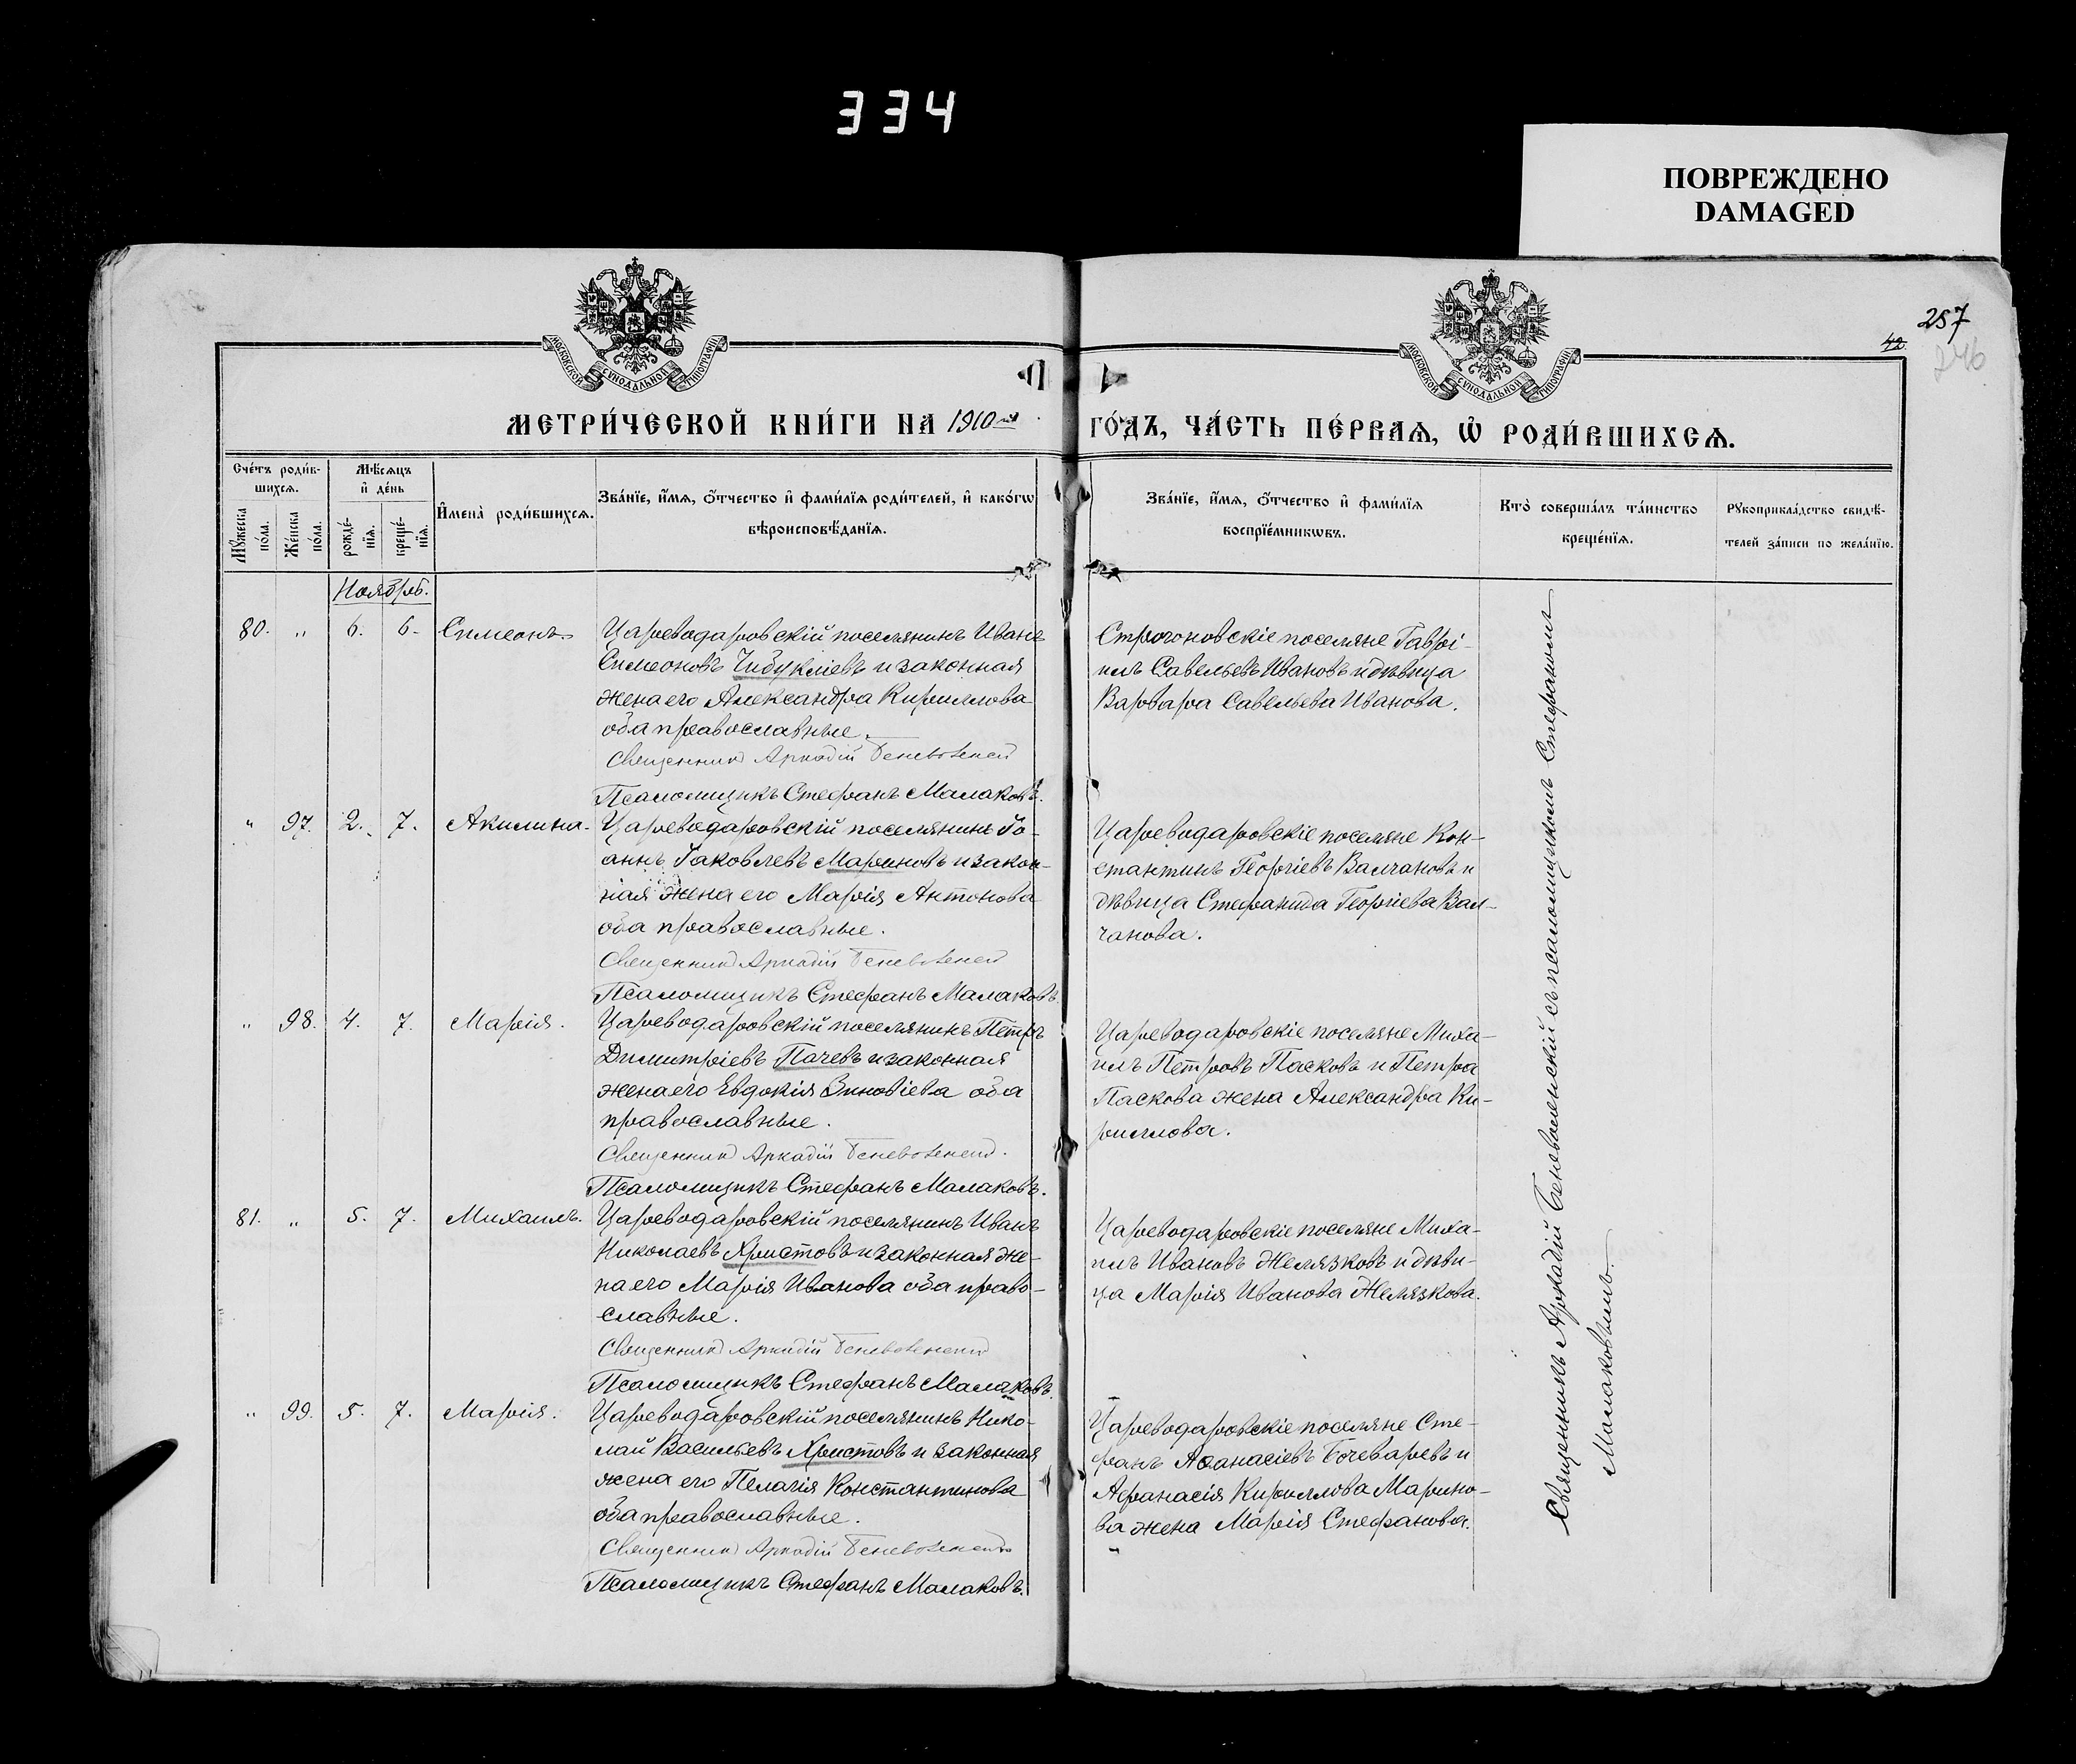 334
ПОВРЕЖДЕНО
DAMAGED
257
42.
246
МОСКОВСКОЙ СУНОДАЛЬНОЙ ТИПОГРАФІИ
МОСКОВСКОЙ СУНОДАЛЬНОЙ ТИПОГРАФІИ
МЕТРИ́ЧЕСКОЙ КНИ́ГИ НА 1910 й ГО́ДЪ, ЧА́СТЬ ПЕ́РВАѦ, Ѡ҆ РОДИ́ВШИХСѦ.
Сче́тъ роди́в-
шихсѧ.
Мѣ́сѧцъ
и҆ де́нь
Мꙋ́жеска по́ла.
Же́нска по́ла.
рожде́-
нїѧ.
креще́-
нїѧ.
И҆мена̀ роди́вшихсѧ.
Зва́нїе, и҆́мѧ, ѻ҆́тчество и҆ фами́лїѧ роди́телей, и҆ како́гѡ
вѣроисповѣ́данїѧ.
Зва́нїе, и҆́мѧ, ѻ҆́тчество и҆ фами́лїѧ
воспрїе́мникѡвъ.
Кто̀ соверша́лъ та́инство
креще́нїѧ.
Рꙋкоприкла́дство свидѣ́-
телей за́писи по жела́нїю.
Ноябрь.
80. „ 6. 6. Симеонъ.
Цареводаровскій поселянинъ Иванъ
Симеоновъ Чибуклiевъ и законная
жена его Александра Кириллова
оба православные.
Священникъ Аркадій Беневоленскій
Псаломщикъ Стефанъ Малаковъ.
Строгоновскіе поселяне Гаврі-
илъ Савельевъ Ивановъ и дѣвица
Варвара Савельева Иванова.
„ 97. 2. 7. Акилина.
Цареводаровскій поселянинъ Іо-
аннъ Іаковлевъ Мариновъ и закон-
ная жена его Марія Антонова
оба православные.
Священникъ Аркадій Беневоленскій
Псаломщикъ Стефанъ Малаковъ
Цареводаровскіе поселяне Кон-
стантинъ Георгіевъ Валчановъ и
дѣвица Стефанида Георгіева Вал-
чанова.
„ 98. 4. 7. Марія.
Цареводаровскій поселянинъ Петръ
Димитріевъ Пачевъ и законная
жена его Евдокія Зиновіева оба
православные.
Священникъ Аркадій Беневоленскій.
Псаломщикъ Стефанъ Малаковъ.
Цареводаровскіе поселяне Миха-
илъ Петровъ Пасковъ и Петра
Паскова жена Александра Ки-
риллова.
81. „ 5. 7. Михаилъ.
Цареводаровскій поселянинъ Иванъ
Николаевъ Христовъ и законная же-
на его Марія Иванова оба право-
славные.
Священникъ Аркадій Беневоленскій
Псаломщикъ Стефанъ Малаковъ.
Цареводаровскіе поселяне Миха-
илъ Ивановъ Желязковъ и дѣви-
ца Марія Иванова Желязкова.
„ 99. 5. 7. Марія.
Цареводаровскій поселянинъ Нико-
лай Васильевъ Христовъ и законная
жена его Пелагія Константинова
оба православные.
Священникъ Аркадій Беневоленскій
Псаломщикъ Стефанъ Малаковъ.
Цареводаровскіе поселяне Сте-
фанъ Аѳанасіевъ Бочеваревъ и
Афанасія Кириллова Марино-
ва жена Марія Стефанова.
Священникъ Аркадій Беневоленскій съ псаломщикомъ Стефаномъ
Малаковымъ.